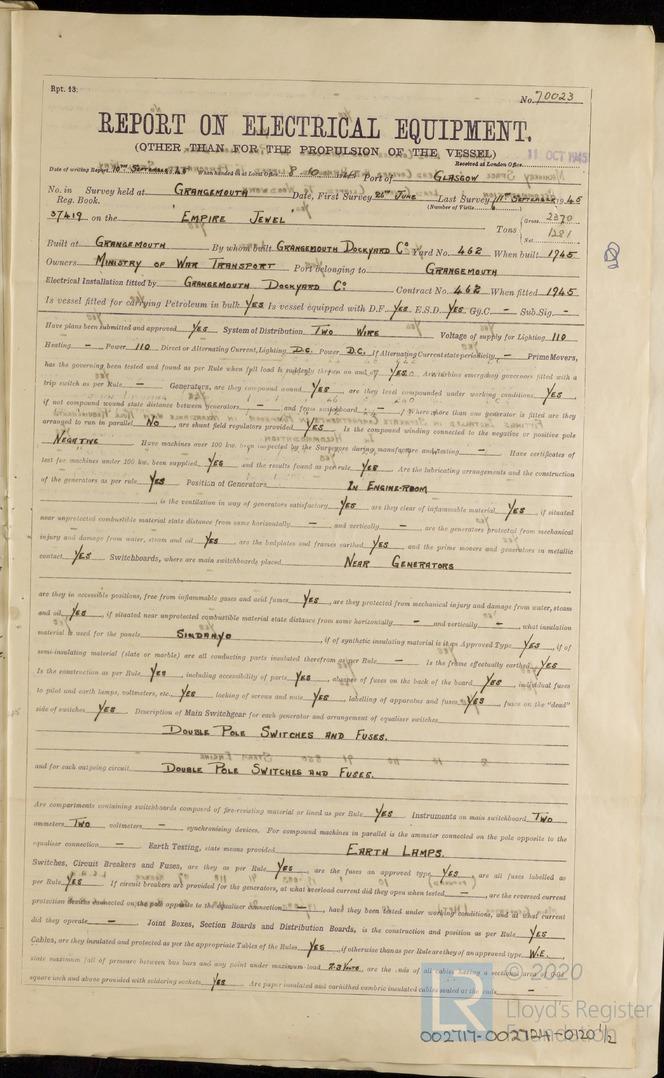 Rpt. 13.
No. 70023
REPORT ON ELECTRICAL EQUIPMENT.
(OTHER THAN FOR THE PROPULSION OF THE VESSEL)
Received at London Office
11 OCT 1945
Date of writing Report 10TH SEPTEMBER 45 When handed in at Local Office 8 10 Port of GLASGOW
No. in Survey held at GRANGEMOUTH Date, First Survey JUNE Last Survey 11TH SEPTEMBER 1945
Reg. Book. (Number of Visits
37419 on the 'EMPIRE JEWEL' Tons { Gross 2370
Net 1281
Built at GRANGEMOUTH By whom built GRANGEMOUTH DOCKYARD Co Yard No. 462 When built 1945
Owners MINISTRY OF WAR TRANSPORT Port belonging to GRANGEMOUTH
Electrical Installation fitted by GRANGEMOUTH DOCKYARD Co Contract No. 462 When fitted 1945
Is vessel fitted for carrying Petroleum in bulk YES Is vessel equipped with D.F. YES E.S.D. YES Gy.C - Sub.Sig. -
Have plans been submitted and approved YES System of Distribution TWO WIRE Voltage of supply for Lighting 110
Heating - Power 110 Direct or Alternating Current, Lighting D.C. Power D.C. If Alternating Current state periodicity - Prime Movers,
has the governing been tested and found as per Rule when full load is suddenly thrown on and off YES Are turbine emergency governors fitted with a
trip switch as per Rule - Generators, are they compound wound YES, are they level compounded under working conditions YES,
if not compound wound state distance between generators - and from switchboard - Where more than one generator is fitted are they
arranged to run in parallel NO, are shunt field regulators provided YES Is the compound winding connected to the negative or positive pole
NEGATIVE Have machines over 100 kw. been inspected by the Surveyors during manufacture and testing - Have certificates of
test for machines under 100 kw. been supplied YES and the results found as per rule YES Are the lubricating arrangements and the construction
of the generators as per rule YES Position of Generators IN ENGINE-ROOM
, is the ventilation in way of generators satisfactory YES are they clear of inflammable material YES, if situated
near unprotected combustible material state distance from same horizontally - and vertically -, are the generators protected from mechanical
injury and damage from water, steam and oil YES, are the bedplates and frames earthed YES and the prime movers and generators in metallic
contact YES Switchboards, where are main switchboards placed NEAR GENERATORS
are they in accessible positions, free from inflammable gases and acid fumes YES, are they protected from mechanical injury and damage from water, steam
and oil YES, if situated near unprotected combustible material state distance from same horizontally - and vertically -, what insulation
material is used for the panels SINDANYO, if of synthetic insulating material is it an Approved Type YES, if of
semi-insulating material (slate or marble) are all conducting parts insulated therefrom as per Rule - Is the frame effectually earthed YES
Is the construction as per Rule YES, including accessibility of parts YES, absence of fuses on the back of the board YES, individual fuses
to pilot and earth lamps, voltmeters, etc. YES locking of screws and nuts YES, labelling of apparatus and fuses YES, fuses on the "dead"
side of switches YES Description of Main Switchgear for each generator and arrangement of equaliser switches
DOUBLE POLE SWITCHES AND FUSES.
and for each outgoing circuit DOUBLE POLE SWITCHES AND FUSES.
Are compartments containing switchboards composed of fire-resisting material or lined as per Rule YES Instruments on main switchboard TWO
ammeters TWO voltmeters - synchronising devices. For compound machines in parallel is the ammeter connected on the pole opposite to the
equaliser connection - Earth Testing, state means provided EARTH LAMPS.
Switches, Circuit Breakers and Fuses, are they as per Rule YES, are the fuses an approved type YES, are all fuses labelled as
per Rule YES If circuit breakers are provided for the generators, at what overload current did they open when tested -, are the reversed current
protection devices connected on the pole opposite to the equaliser connection -, have they been tested under working conditions, and at what current
did they operate - Joint Boxes, Section Boards and Distribution Boards, is the construction and position as per Rule YES
Cables, are they insulated and protected as per the appropriate Tables of the Rules YES, if otherwise than as per Rule are they of an approved type W.E.
state maximum fall of pressure between bus bars and any point under maximum load 2.3 VOLTS, are the ends of all cables having a sectional area of
square inch and above provided with soldering sockets YES Are paper insulated and varnished cambric insulated cables sealed at the ends -
© 2020
LR
Lloyd's Register
Foundation
002717-002724-0120 1/2